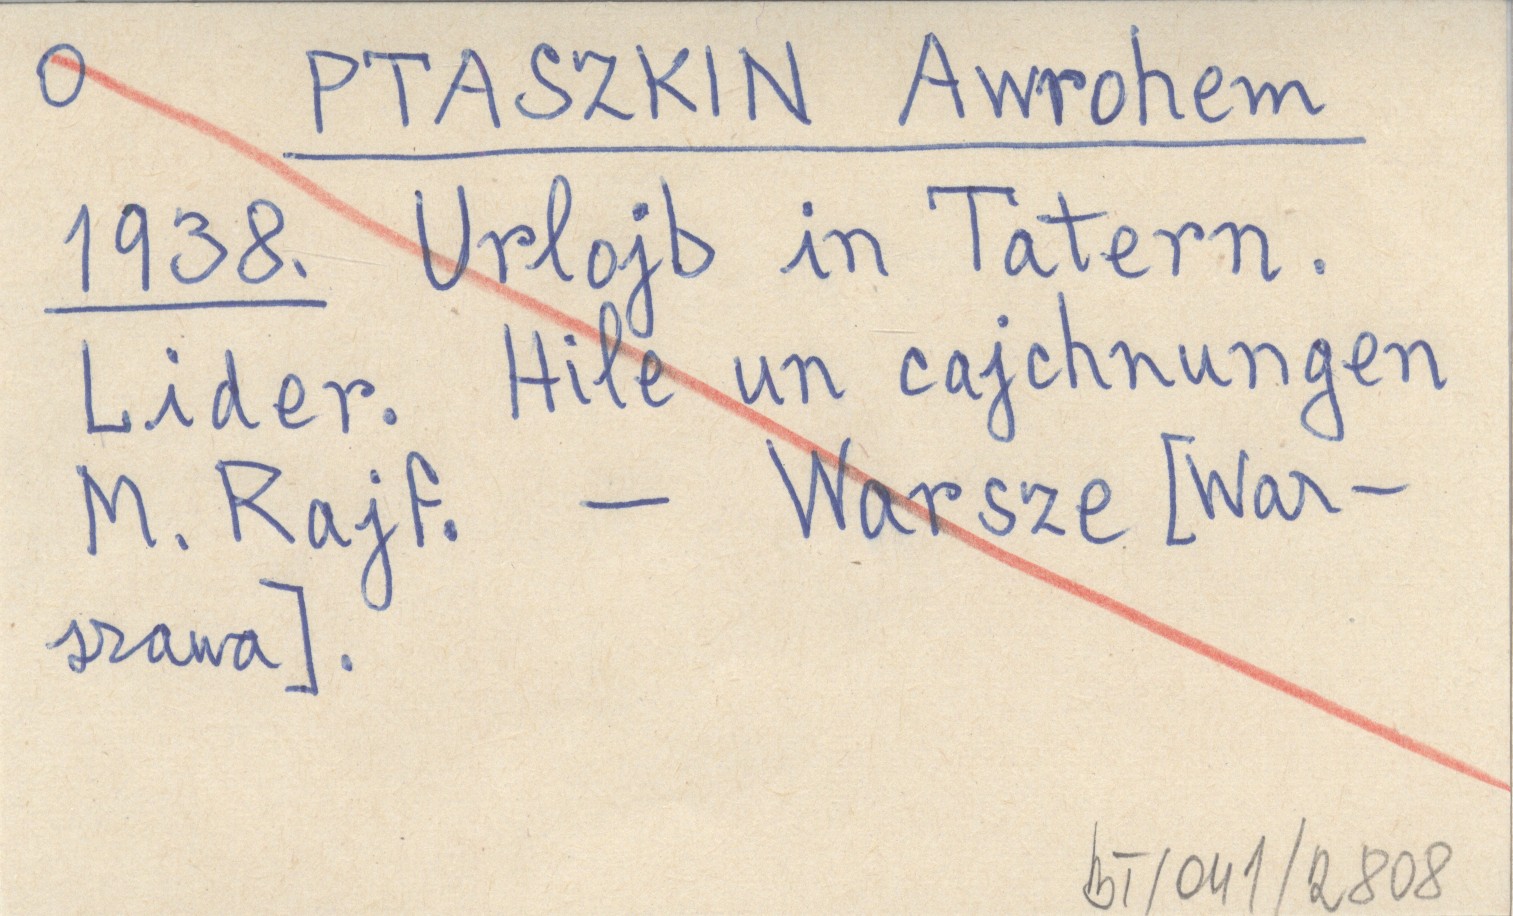 O PTASZKIN Awrohem
1938. Urlojb in Tatern.
Lider. Hile un cajchnungen
M. Rajf. — Warsze [War-
szawa].
BT/041/2808